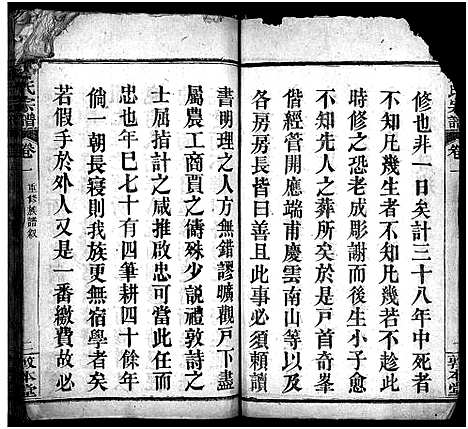 修也非一日矣計三十八年中死者
不知凡幾生者不知凡幾若不趁此
時修之恐老成彫謝而後生小子愈
不知先人之葬所矣於是戶首奇峯
偕經管開應端甫慶雲南山等以及
各房房長僉曰善且此事必須賴讀
氏宗譜
卷一
一
敦本堂
書明理之人方無錯謬曠觀戶下盡
屬農工商賈之儔殊少說禮敦詩之
士屬指而計之咸推啟忠可當此任而
忠也年巳七十有四筆耕四十餘年
倘一朝長寢則我族更無宿學者矣
若假手於外人又是一番繳費故必
氏宗譜
卷一
重修族譜敘
二
敦本堂